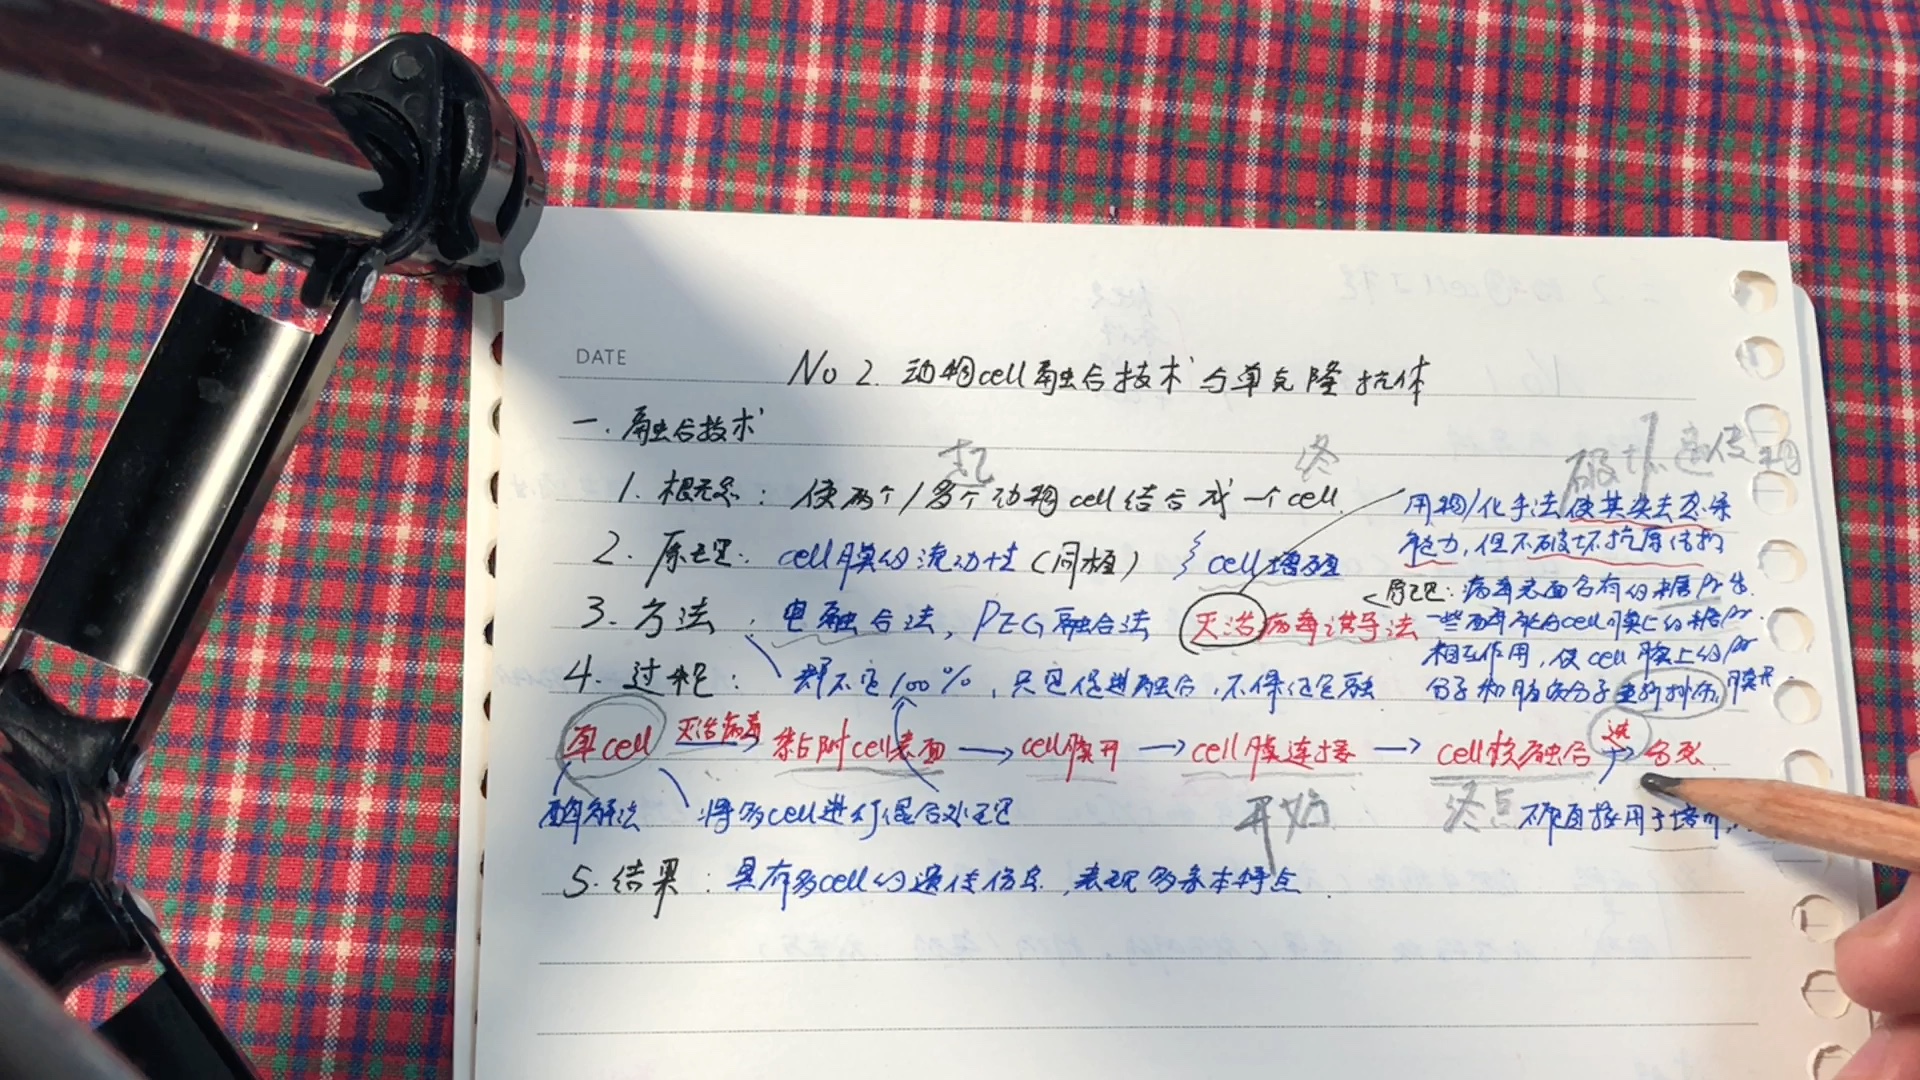 DATE
No 2. 动物cell融合技术与单克隆抗体
一. 融合技术
起 终 破坏遗传物
1. 概念: 使两个/多个动物cell结合成一个cell
用物/化手法使其失去感染
能力,但不破坏抗原结构
2. 原理: cell膜的流动性(同植) cell增殖
原理: 病毒表面含有的糖Pr与
3. 方法: 电融合法, PEG融合法 灭活病毒诱导法
一些酶能和cell膜上的糖Pr
相互作用,使cell膜上的Pr
分子和脂质分子重新排布,膜开
4. 过程: 都不它100%, 只它促进融合,不保证它融
单cell 灭活病毒→ 黏附cell表面 → cell膜开 → cell膜连接 → cell核融合 选→ 杂死
酶解法 将多cell进行混合处理 开始 终点 不能直接用于培
5. 结果: 具有多cell的遗传信息,表现多亲本特点